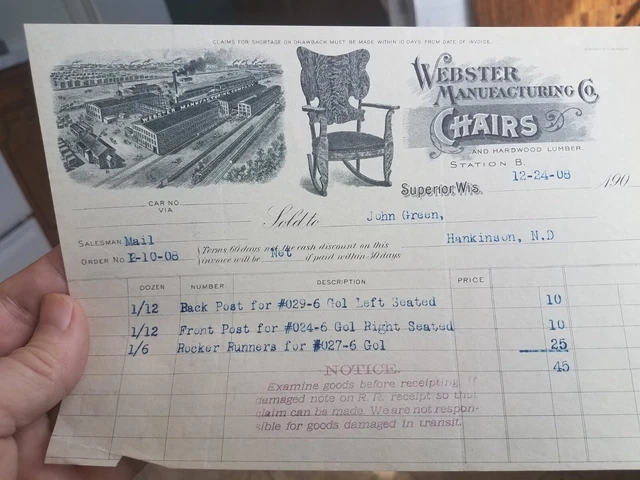 CLAIMS FOR SHORTAGE OR DRAWBACK MUST BE MADE WITHIN 10 DAYS FROM DATE OF INVOICE.
WEBSTER MANUFACTURING
WEBSTER
MANUFACTURING CO.
CHAIRS
AND HARDWOOD LUMBER.
STATION B.
Superior, Wis. 12-24-08 190
CAR NO.
VIA
Sold to John Green,
Hankinson, N.D
SALESMAN Mail
ORDER No. E-10-08
Terms, 60 days net, the cash discount on this
invoice will be Net if paid within 30 days
DOZEN NUMBER DESCRIPTION PRICE
1/12 Back Post for #029-6 Gol Left Seated 10
1/12 Front Post for #024-6 Gol Right Seated 10
1/6 Rocker Runners for #027-6 Gol 25
45
NOTICE.
Examine goods before receipting if
damaged note on R. R. receipt so that
claim can be made. We are not respon-
sible for goods damaged in transit.